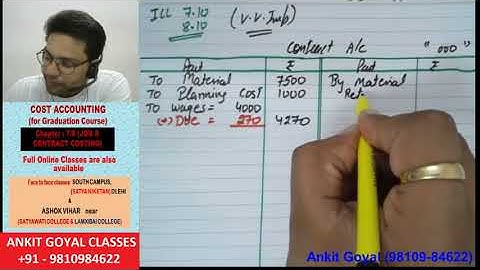 ILL 7.10
8.10
(V.V.Imb)
Contract A/c
"000"
Part ₹ Part ₹
To Material 7500 By Material
To Planning COST 1000 Ret
To Wages = 4000
(+) Due = 270 4270
COST ACCOUNTING
(for Graduation Course)
CONTRACT COSTING)
Full Online Classes are also
available
Face to face classes SOUTH CAMPUS,
(SATYA NIKETAN) DLEHI
&
ASHOK VIHAR near
(SATYAWATI COLLEGE & LAMXIBAI COLLEGE)
ANKIT GOYAL CLASSES
+91 - 9810984622
Ankit Goyal (98109-84622)